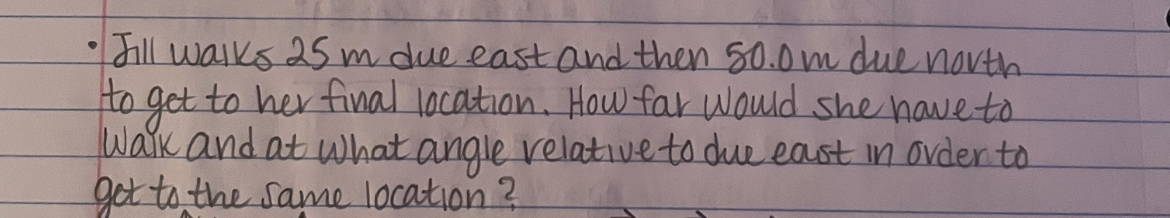 • Jill walks 25 m due east and then 50.0 m due north
to get to her final location. How far would she have to
walk and at what angle relative to due east in order to
get to the same location?